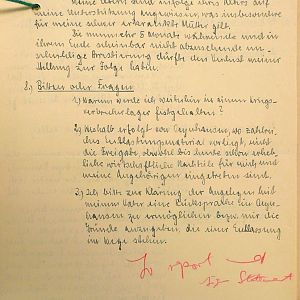 meine Eltern sind infolge ihres Alters auf
meine Unterstützung angewiesen, was insbesondere
für meine schwer erkrankte Mutter gilt.
Die nunmehr 8 Monate während und in
ihrem Ende scheinbar nicht abzusehende un-
schuldige Arrestierung dürfte den Verlust meiner
Stellung zur Folge haben.
2.) Bitten oder Fragen
1.) Warum werde ich weiterhin in einem Kriegs-
verbrecherlager festgehalten?
2.) Weshalb erfolgt von Oeynhausen, wo zahlrei-
ches Entlastungsmaterial vorliegt, nicht
die Freigabe, obwohl bis heute schon erheb-
liche wirtschaftliche Nachteile für mich und
meine Angehörigen eingetreten sind.
3.) Ich bitte zur Klärung der Angelegenheit
meinem Vater eine Rücksprache in Oeyn-
hausen zu ermöglichen bzw. mir die
Gründe anzugeben, die einer Entlassung
im Wege stehen.